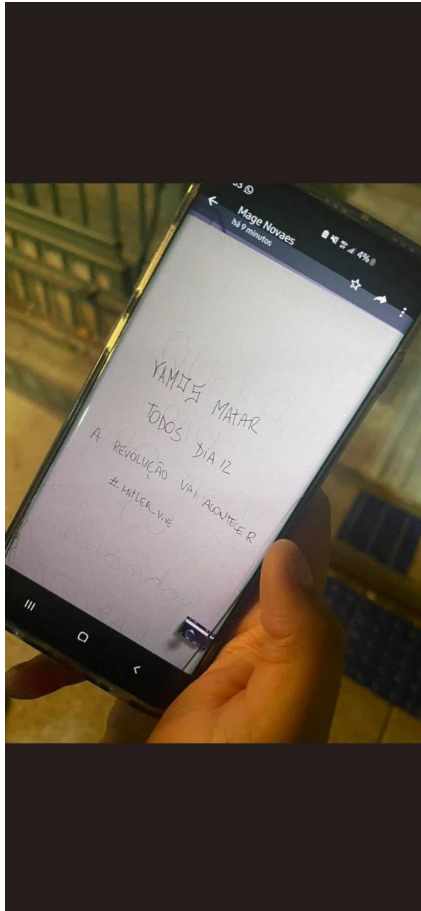 Mage Novaes
há 9 minutos
4%
VAMOS MATAR
TODOS DIA 12
A REVOLUÇÃO VAI ACONTECER
#HITLER_VIVE